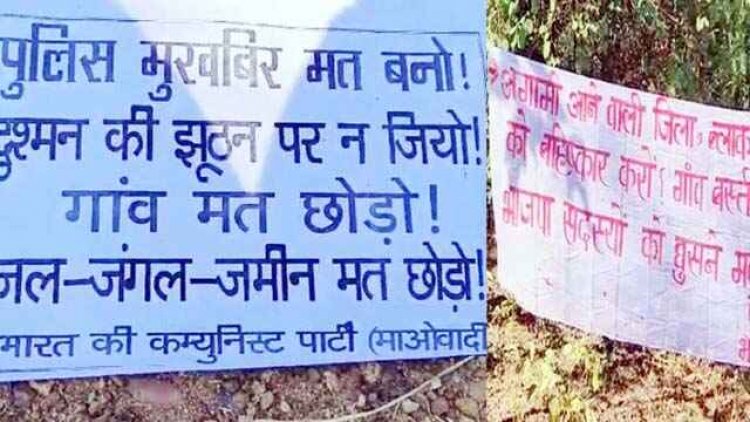 पुलिस मुखबिर मत बनो!
दुश्मन की झूठन पर न जियो!
गांव मत छोड़ो!
जल-जंगल-जमीन मत छोड़ो!
भारत की कम्युनिस्ट पार्टी (माओवादी
अगामी आने वाली जिला, ब्लाक
को बहिष्कार करो! गांव बस्ती
भाजपा सदस्यों को घुसने म